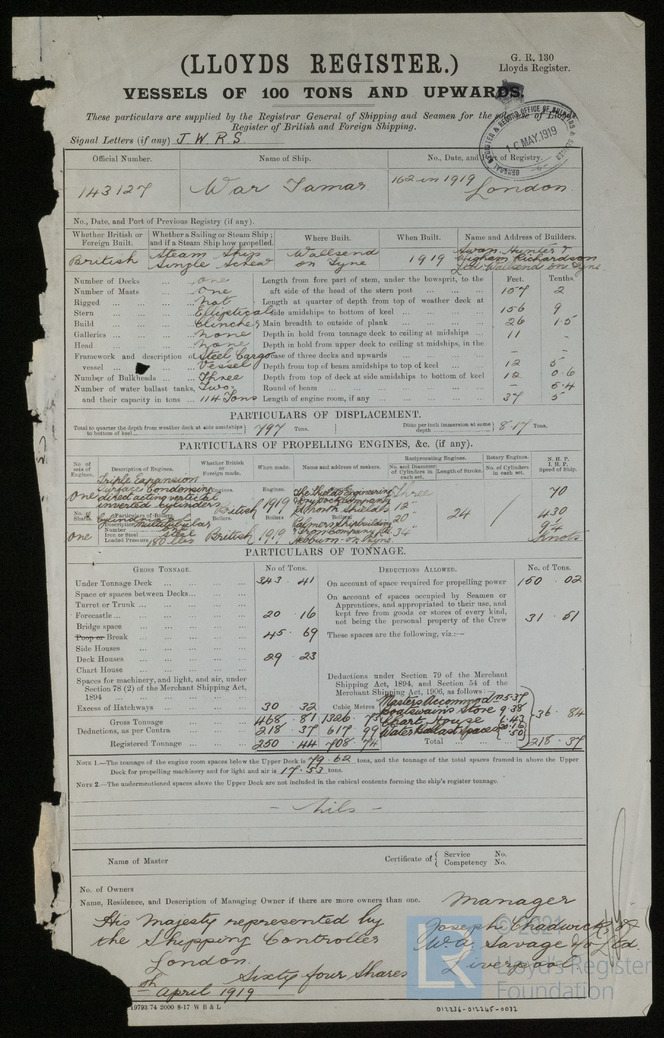 (LLOYDS REGISTER.)
G. R. 130
Lloyds Register.
VESSELS OF 100 TONS AND UPWARDS.
These particulars are supplied by the Registrar General of Shipping and Seamen for the sole use of Lloyds
Register of British and Foreign Shipping.
16 MAY. 1919
Signal Letters (if any) J W R S
Official Number. Name of Ship. No., Date, and Port of Registry.
143127 War Tamar 162 in 1919 London
No., Date, and Port of Previous Registry (if any).
Whether British or Foreign Built. Whether a Sailing or Steam Ship; and if a Steam Ship how propelled. Where Built. When Built. Name and Address of Builders.
British Steam Ship Single Screw Wallsend on Tyne 1919 Swan Hunter & Wigham Richardson Ltd Wallsend on Tyne
Feet. Tenths.
Number of Decks ... one Length from fore part of stem, under the bowsprit, to the
Number of Masts ... One aft side of the head of the stern post ... 157 2
Rigged ... Not Length at quarter of depth from top of weather deck at
Stern ... Elliptical side amidships to bottom of keel ... 156 9
Build ... Clincher Main breadth to outside of plank ... 26 1.5
Galleries ... None Depth in hold from tonnage deck to ceiling at midships ... 11 -
Head ... None Depth in hold from upper deck to ceiling at midships, in the
Framework and description of vessel ... Steel Cargo Vessel case of three decks and upwards - -
Depth from top of beam amidships to top of keel ... 12 5
Number of Bulkheads ... Three Depth from top of deck at side amidships to bottom of keel 12 0.6
Number of water ballast tanks, Two Round of beam ... - 5.4
and their capacity in tons ... 114 Tons Length of engine room, if any ... 37 5
PARTICULARS OF DISPLACEMENT.
Total to quarter the depth from weather deck at side amidships to bottom of keel 797 Tons. Ditto per inch immersion at same depth 8.17 Tons.
PARTICULARS OF PROPELLING ENGINES, &c. (if any).
No. of sets of Engines. Description of Engines. Whether British or Foreign made. When made. Name and address of makers. Reciprocating Engines. Rotary Engines. N. H. P. I. H. P. Speed of Ship.
No. and Diameter of Cylinders in each set. Length of Stroke. No. of Cylinders in each set.
One Triple Expansion Surface Condensing direct acting vertical inverted cylinders British 1919 The Shields Engineering Dry Dock Company Ltd North Shields Three 12" 20" 34" 24 70 430 9¼ Knots
No. of Shafts. Particulars of Boilers.
Description
Number
Iron or Steel Steel
Loaded Pressure 180 lbs
One British 1919 Palmers Shipbuilding & Iron Company Ltd Hebburn-on-Tyne
PARTICULARS OF TONNAGE.
GROSS TONNAGE. No of Tons. DEDUCTIONS ALLOWED. No. of Tons.
Under Tonnage Deck ... 343 . 41 On account of space required for propelling power 150 . 02
Space or spaces between Decks... On account of spaces occupied by Seamen or
Turret or Trunk ... Apprentices, and appropriated to their use, and
Forecastle ... 20 . 16 kept free from goods or stores of every kind,
Bridge space not being the personal property of the Crew 31 51
Poop or Break ... 45 . 69 These spaces are the following, viz.:—
Side Houses
Deck Houses ... 29 . 23
Chart House
Spaces for machinery, and light, and air, under Section 78 (2) of the Merchant Shipping Act, 1894 ...
Deductions under Section 79 of the Merchant Shipping Act, 1894, and Section 54 of the Merchant Shipping Act, 1906, as follows:—
Excess of Hatchways ... 30 32 Cubic Metres Masters Accommodn
Boatswains Store 9.38
Chart House 6.43
Water Ballast Space
36 . 84
Gross Tonnage 468 . 81 1326 . 73
Deductions, as per Contra 218 . 37 617 99
Registered Tonnage ... 250 . 44 708 . 74 Total ... 218 . 37
NOTE 1.—The tonnage of the engine room spaces below the Upper Deck is 79.62 tons, and the tonnage of the total spaces framed in above the Upper
Deck for propelling machinery and for light and air is 17.53 tons.
NOTE 2.—The undermentioned spaces above the Upper Deck are not included in the cubical contents forming the ship's register tonnage.
- Nils -
Name of Master Certificate of { Service No. Competency No.
No. of Owners
Name, Residence, and Description of Managing Owner if there are more owners than one.
Manager
His Majesty represented by
the Shipping Controller
London.
Sixty four Shares
Joseph Chadwick
Liverpool
April 1919
19793.74 2000 8-17 W B & L
012236-012245-0032
© 2021
LR
Lloyd's Register
Foundation